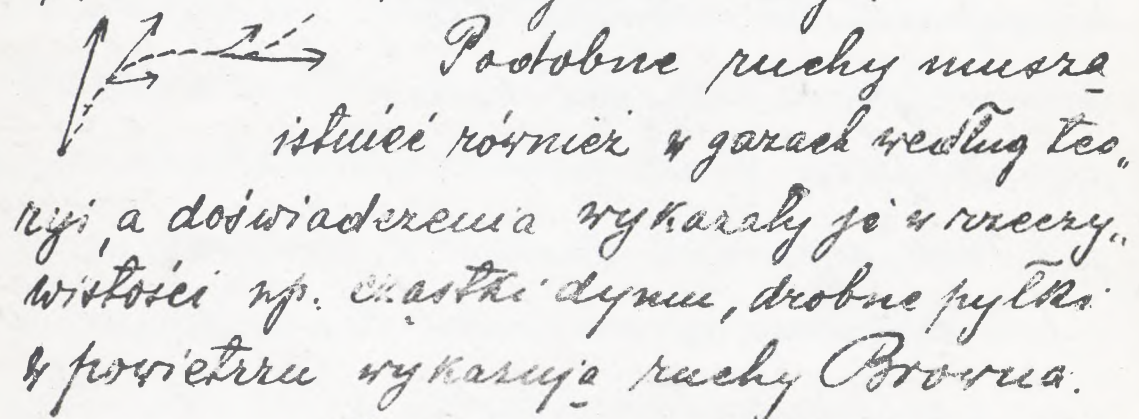 Podobne ruchy muszą
istnieć również w gazach według teo„
ryi, a doświadczenia wykazały je w rzeczy„
wistości np. cząstki dymu, drobne pyłki
w powietrzu wykazują ruchy Browna.